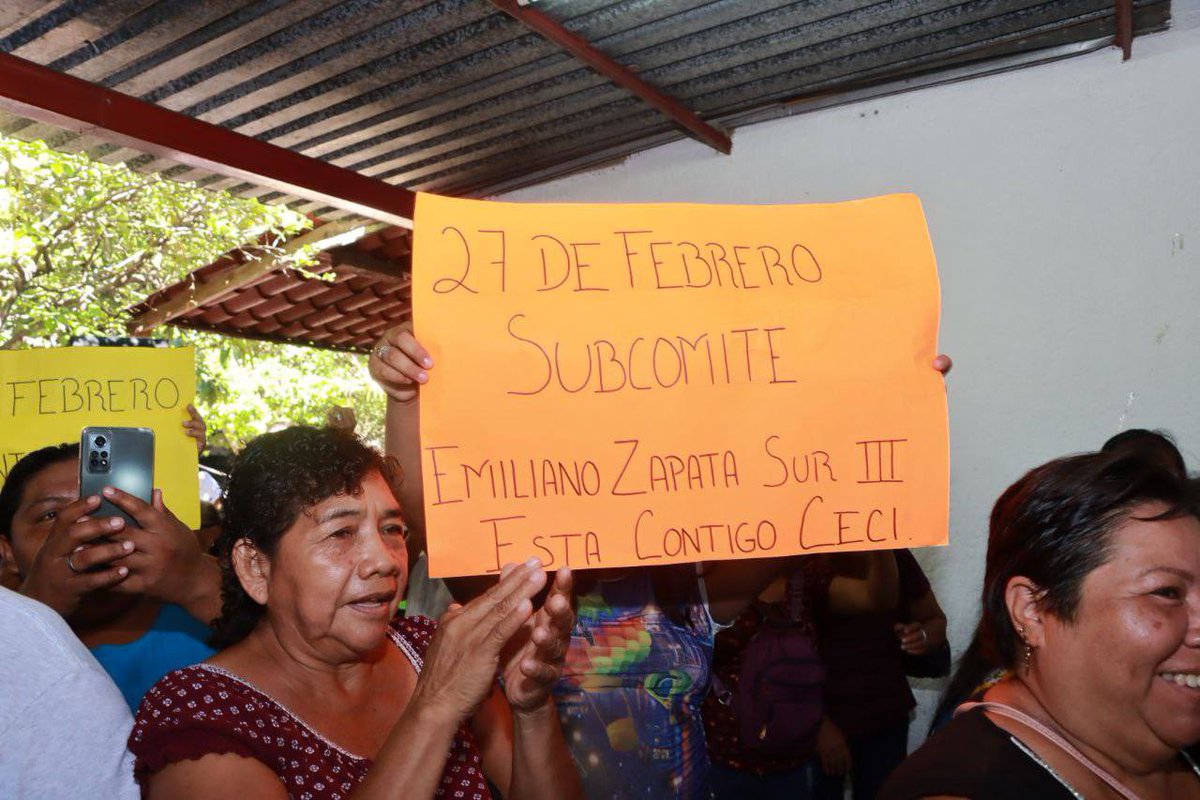 27 DE FEBRERO
SUBCOMITE
EMILIANO ZAPATA SUR III
ESTA CONTIGO CECI.
FEBRERO